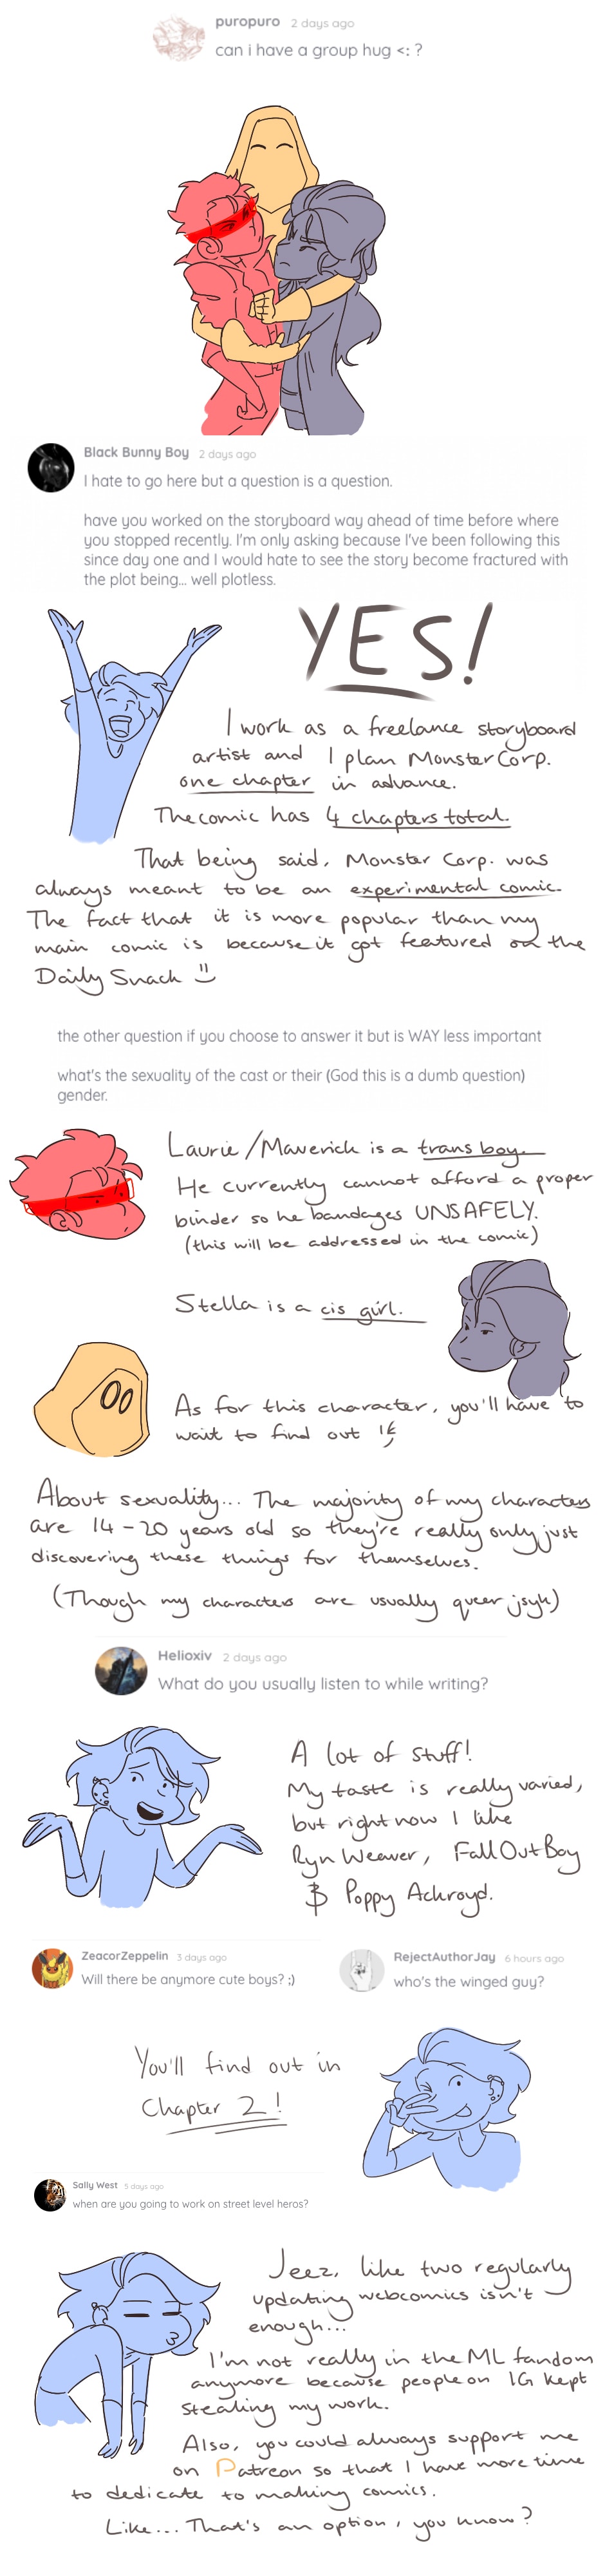 puropuro 2 days ago
can i have a group hug <: ?
Black Bunny Boy 2 days ago
I hate to go here but a question is a question.
have you worked on the storyboard way ahead of time before where
you stopped recently. I'm only asking because I've been following this
since day one and I would hate to see the story become fractured with
the plot being... well plotless.
YES!
I work as a freelance storyboard
artist and I plan Monster Corp.
one chapter in advance.
The comic has 4 chapters total.
That being said, Monster Corp. was
always meant to be an experimental comic.
The fact that it is more popular than my
main comic is because it got featured on the
Daily Snack :)
the other question if you choose to answer it but is WAY less important
what's the sexuality of the cast or their (God this is a dumb question)
gender.
Laurie/Maverick is a trans boy.
He currently cannot afford a proper
binder so he bandages UNSAFELY.
(this will be addressed in the comic)
Stella is a cis girl.
As for this character, you'll have to
wait to find out
About sexuality... The majority of my characters
are 14-20 years old so they're really only just
discovering these things for themselves.
(Though my characters are usually queer jsyk)
Helioxiv 2 days ago
What do you usually listen to while writing?
A lot of stuff!
My taste is really varied,
but right now I like
Ryn Weaver, Fall Out Boy
& Poppy Ackroyd.
ZeacorZeppelin 3 days ago
Will there be anymore cute boys? ;)
RejectAuthorJay 6 hours ago
who's the winged guy?
You'll find out in
Chapter 2!
Sally West 5 days ago
when are you going to work on street level heros?
Jeez, like two regularly
updating webcomics isn't
enough...
I'm not really in the ML fandom
anymore because people on IG kept
stealing my work.
Also, you could always support me
on Patreon so that I have more time
to dedicate to making comics.
Like... That's an option, you know?